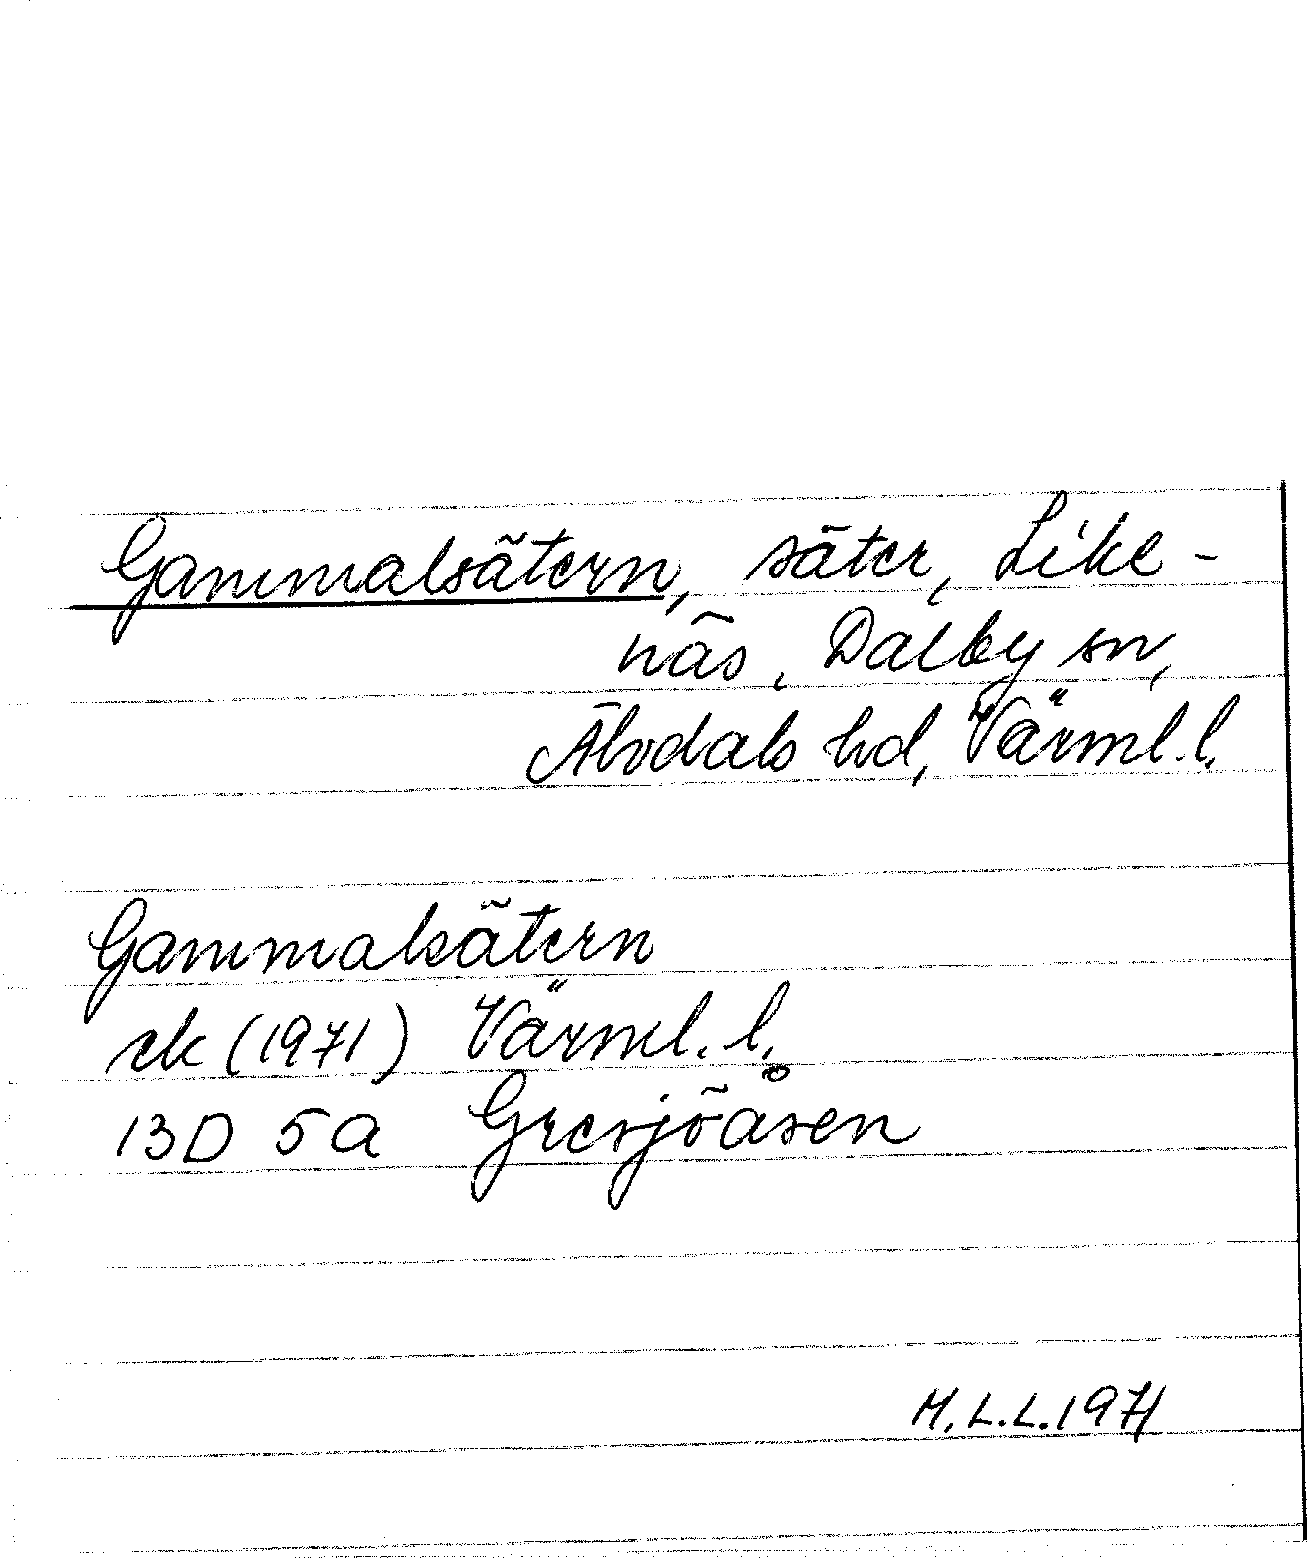 Gammalsätern, säter, Like-
näs, Dalby sn,
Älvdals hd, Värml. l.
Gammalsätern
ek (1971) Värml. l.
13D 5a Gresjöåsen
M.L.L. 1971